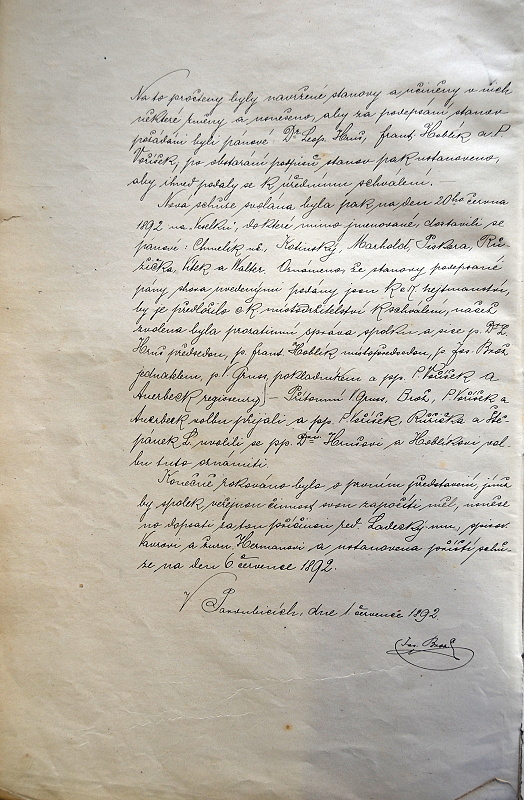 Na to pročteny byly navržené stanovy a učiněny v nich
některé změny a usneseno, aby za podepsání stanov
požádáni byli pánové: Dr. Leop. Hruš, frant. Hoblík a P.
Voříšek, po obstarání podpisů stanov pak ustanoveno,
aby ihned podaly se k úřednímu schválení.
Nová schůze svolána byla pak na den 20ho června
1892 na Veselku, do které mimo jmenované, dostavili se
pánové: Chmelík ml., Kotinský, Marhold, Pískára, Rů-
žička, Vítek a Walter. Oznámeno, že stanovy podepsané
pány shora uvedenými podány jsou k c.k. hejtmanství,
by je předložilo c.k. místodržitelství k schválení, načež
zvolena byla prozatimní správa spolku a sice p. Dr. L.
Hruš předsedou, p. frant. Hoblík místopředsedou, p. Jos. Brož
jednatelem, p. I. Gruss pokladníkem a pp. P. Voříšek a
Auerbeck regisseury. – Přítomní I. Gruss, Brož, P. Voříšek a
Auerbeck volbu přijali a pp. P. Voříšek, Růžička a Ště-
pánek L. uvolili se pp. Dru Hrušovi a Hoblíkovi vol-
bu tuto oznámiti.
Konečně rokováno bylo o prvním představení, jímž
by spolek veřejnou činnost svou započíti měl, usnese-
no dopsati za tou příčinou řed. Ladeckýmu, spisov.
a žurn. Hermanovi a ustanovena příští schů-
ze na den 6 července 1892.
V Pardubicích, dne 1 července 1892.
Jos. Brož